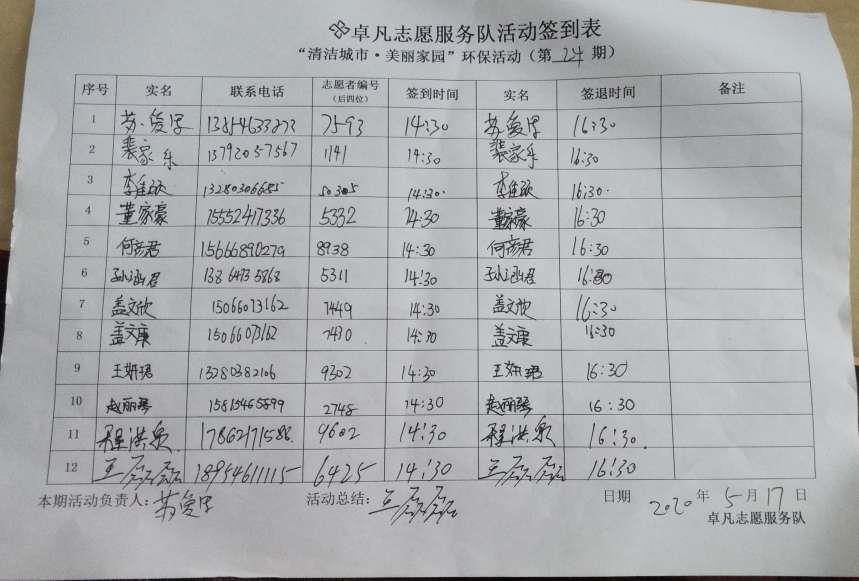 卓凡志愿服务队活动签到表
“清洁城市·美丽家园”环保活动（第 24 期）
序号 实名 联系电话 志愿者编号（后四位） 签到时间 实名 签退时间 备注
1 苏爱 7593 14:30 苏爱 16:30
2 裴家乐 13792057567 1141 14:30 裴家乐 16:30
3 李佳欣 13280306685 50305 14:30 李佳欣 16:30
4 董家豪 15552417336 5332 14:30 董家豪 16:30
5 何彦君 15666890279 8938 14:30 何彦君 16:30
6 孙涵君 13864735868 5311 14:30 孙涵君 16:30
7 盖文欣 15066073162 7449 14:30 盖文欣 16:30
8 盖文康 15066073162 7430 14:30 盖文康 16:30
9 王妍珺 13280382106 9302 14:30 王妍珺 16:30
10 赵丽琴 15815465899 2748 14:30 赵丽琴 16:30
11 程洪泉 17862171588 9602 14:30 程洪泉 16:30
12 王磊磊 18954611115 6425 14:30 王磊磊 16:30
本期活动负责人：苏爱 活动总结：王磊磊 日期 2020年5月17日
卓凡志愿服务队